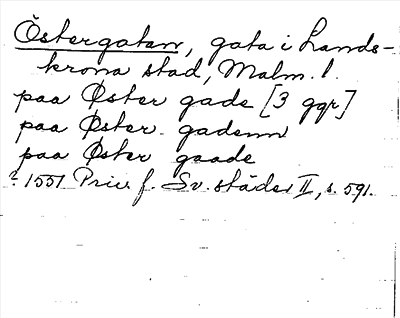 Östergatan, gata i Lands-
krona stad, Malm. l.
paa Øster gade [3 ggr]
paa Øster gadenn
paa Øster gaade
1551 Priv. f. Sv. städer II, s. 591.